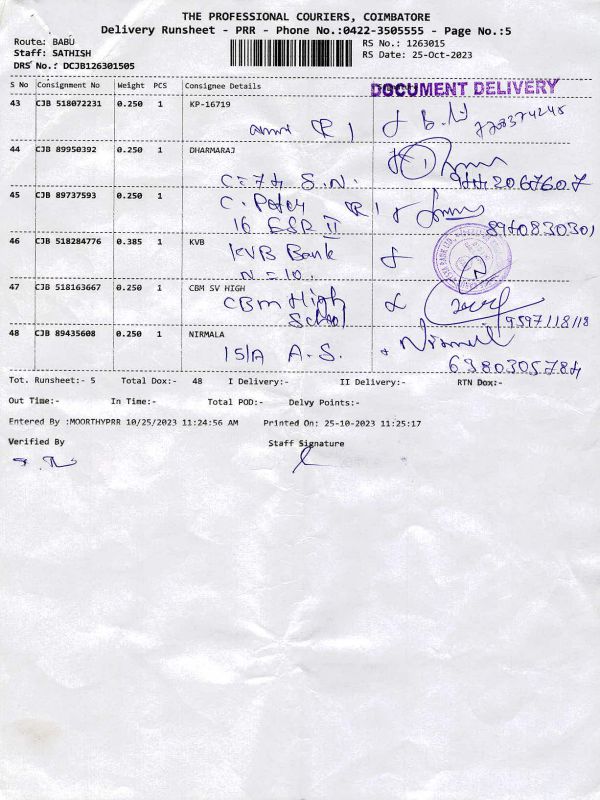 THE PROFESSIONAL COURIERS, COIMBATORE
Delivery Runsheet - PRR - Phone No.:0422-3505555 - Page No.:5
Route: BABU RS No.: 1263015
Staff: SATHISH RS Date: 25-Oct-2023
DRS No.: DCJB126301505
S No Consignment No Weight PCS Consignee Details
DOCUMENT DELIVERY
43 CJB 518072231 0.250 1 KP-16719
44 CJB 89950392 0.250 1 DHARMARAJ
C=74 S.N. 9442067607
45 CJB 89737593 0.250 1 C. Peter
16 ESR II 8940830301
46 CJB 518284776 0.385 1 KVB
KVB Bank
N = 10.
47 CJB 518163667 0.250 1 CBM SV HIGH
CBM High
School
9597118118
48 CJB 89435608 0.250 1 NIRMALA
Nirmala
15/A A.S.
6380305784
Tot. Runsheet:- 5 Total Dox:- 48 I Delivery:- II Delivery:- RTN Dox:-
Out Time:- In Time:- Total POD:- Delvy Points:-
Entered By :MOORTHYPRR 10/25/2023 11:24:56 AM Printed On: 25-10-2023 11:25:17
Verified By Staff Signature